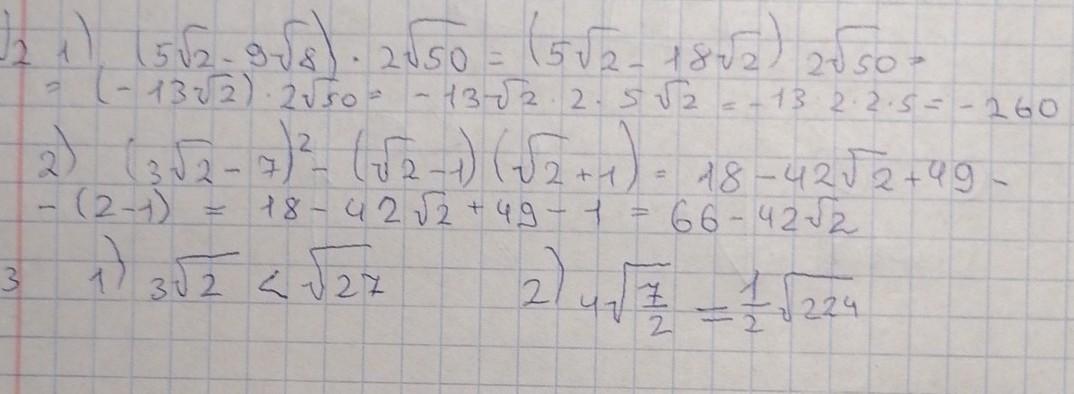 №2 1) (5√2 - 9√8) · 2√50 = (5√2 - 18√2) 2√50 =
= (-13√2) · 2√50 = -13√2 · 2 · 5√2 = -13·2·2·5 = -260
2) (3√2 - 7)² - (√2 - 1)(√2 + 1) = 18 - 42√2 + 49 -
- (2-1) = 18 - 42√2 + 49 - 1 = 66 - 42√2
3 1) 3√2 < √27 2) 4√(7/2) = 1/2 √224